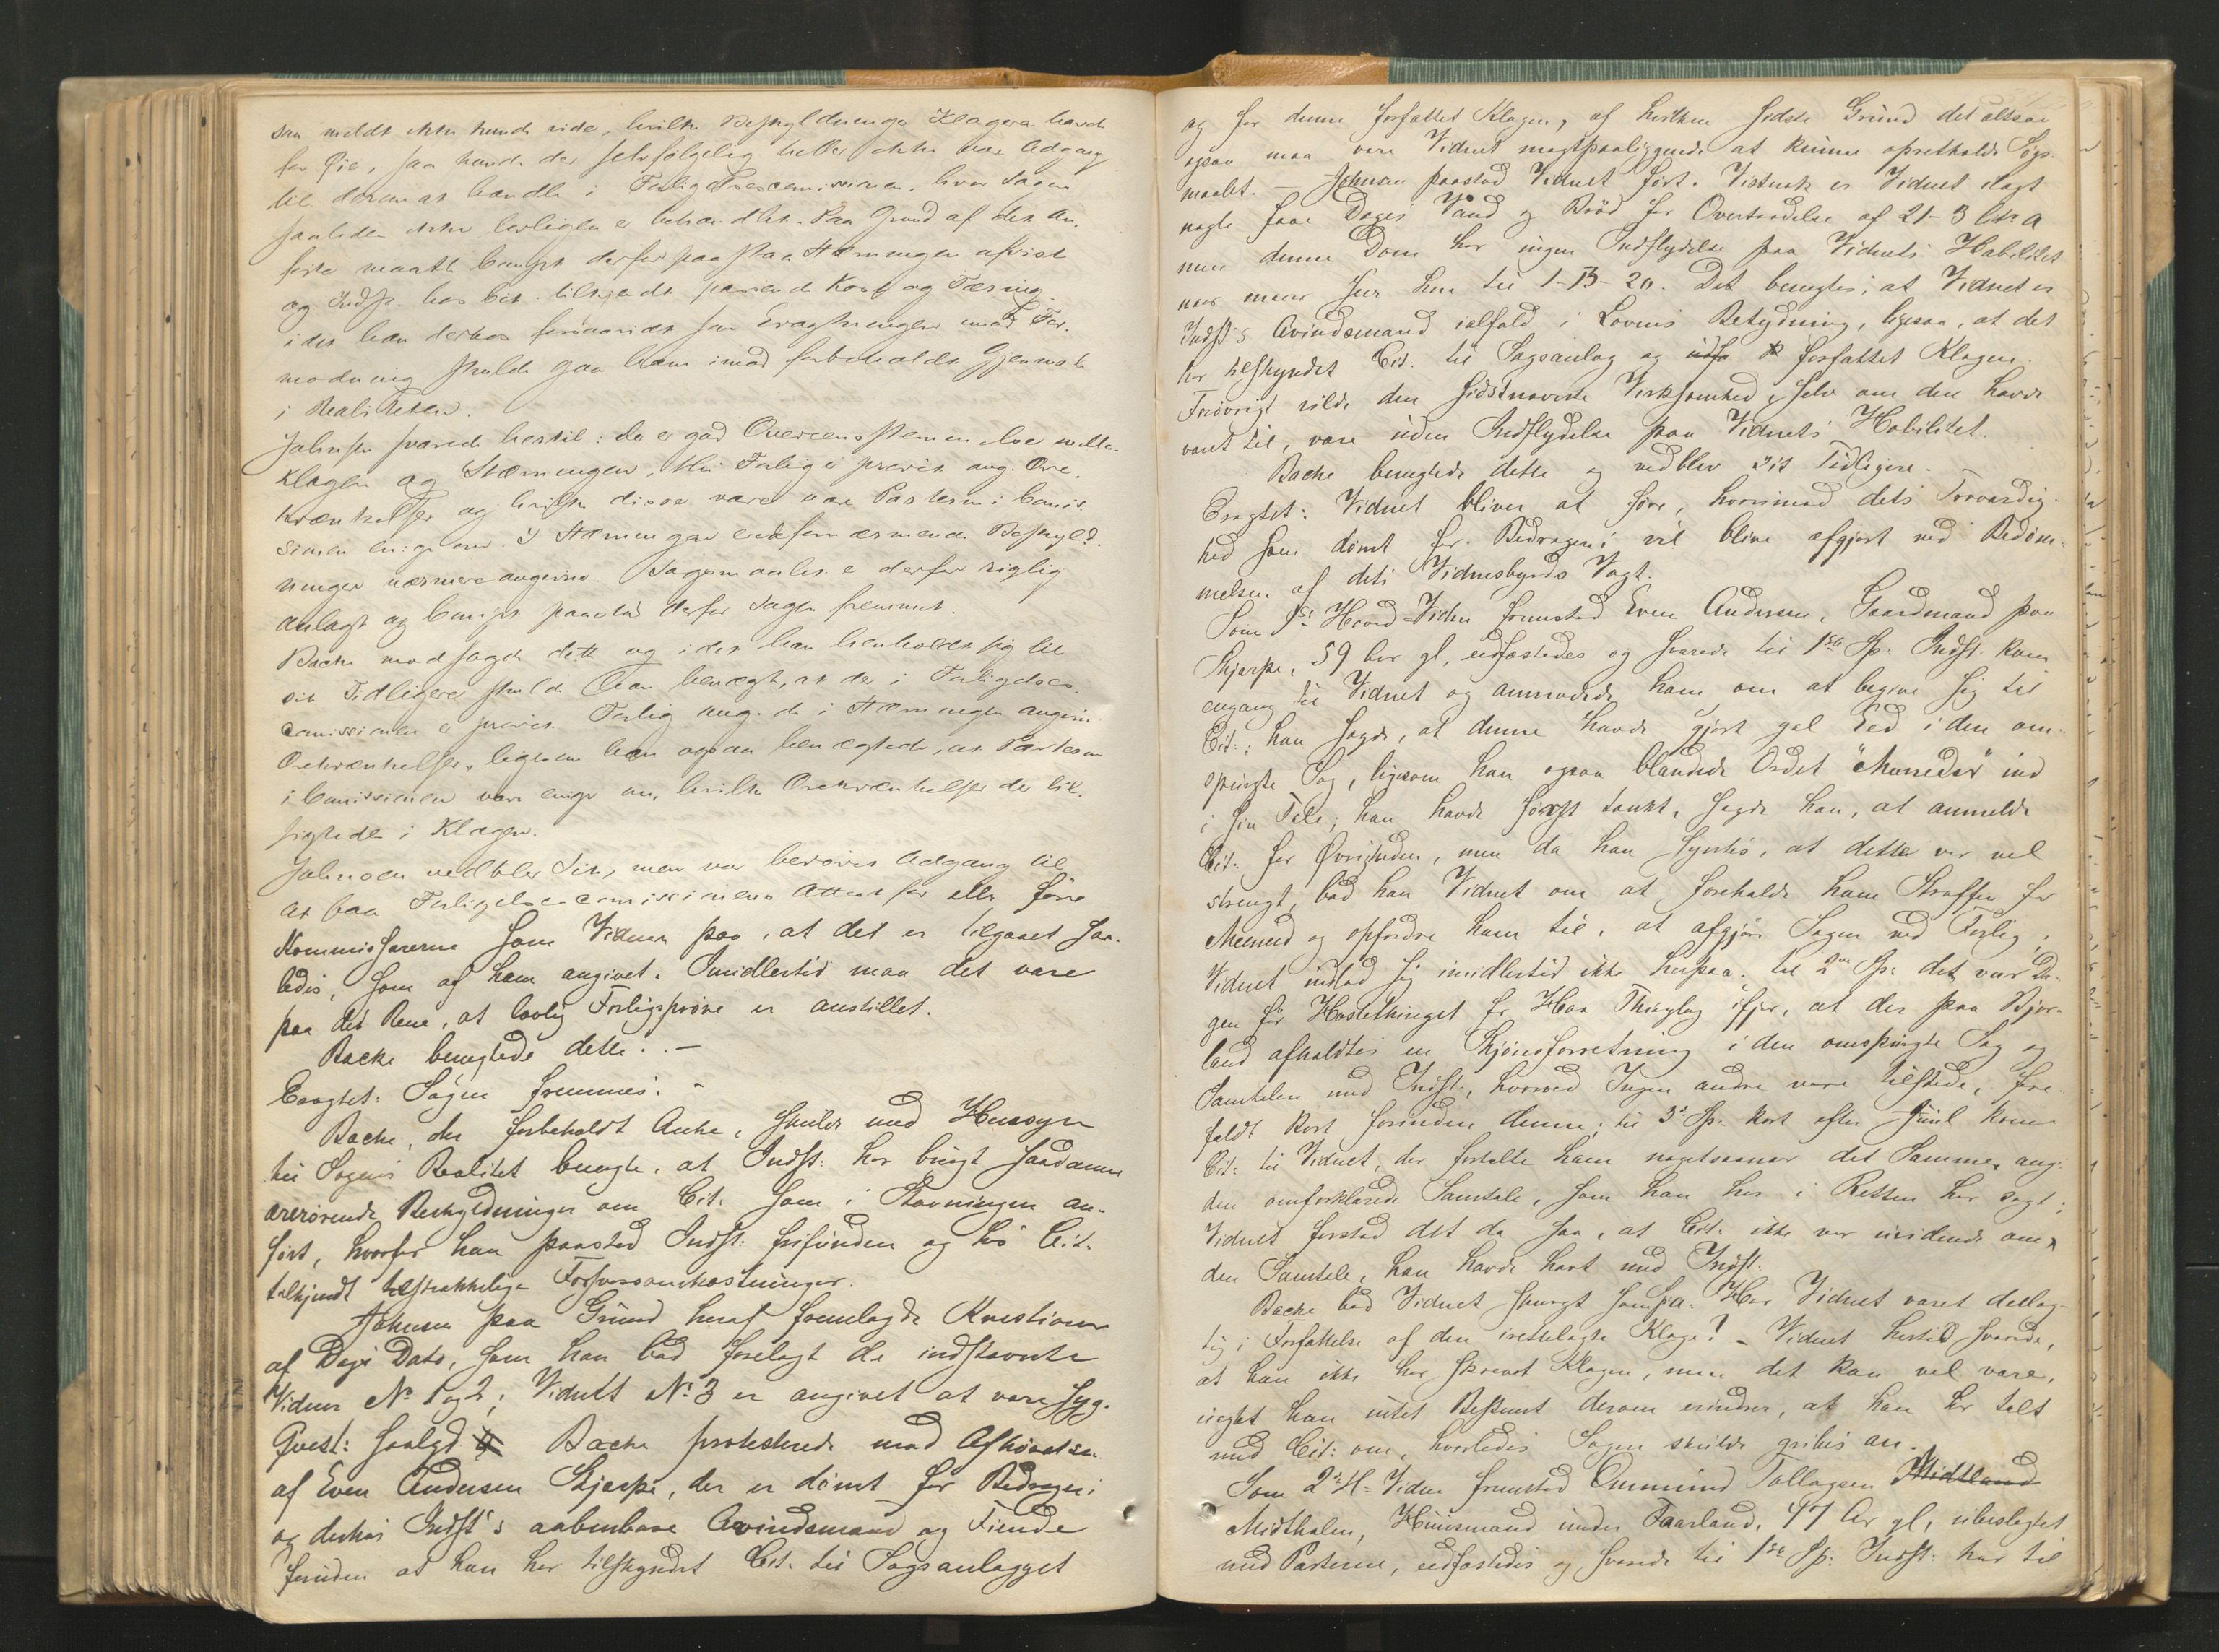 san meldt ikke kunde vide, hvilke Beskyldninger Klageren havde
for Øie, saa kunde der selvfølgelig heller ikke være Adgang
til derom at handle i Forligelsescomissionen, hvor Sagen
saaledes ikke lovligen er behandlet. Paa Grund af det An-
førte maatte Compt derfor paastaa Stævningen afvist
og Indst. hos Cit. tilkjendt passende Kost og Tæring
idet han derhos forsaavidt som Eragtningen mod For-
modning skulde gaa ham imod forbeholdt Gjenmæle
i Realiteten.
Johnsen svarede hertil: der er god Overeensstemmelse mellem
Klagen og Stævningen, thi Forlig er prøvet ang. Ære-
krænkelser og hvilke disse vare var Parterne i Comis-
sionen enige om. I Stævningen ere de fornærmende Beskyld-
ninger nærmere angivne. Sagsmaalet er derfor rigtig
anlagt og Compt paastod derfor Sagen fremmet.
Backe modsagde dette og idet han henholdt sig til
sit Tidligere skulde han benægte, at der i Forligelses-
comissionen er prøvet Forlig ang. de i Stævningen angivne
Ærekrænkelser, ligesom han ogsaa benægtede, at Parterne
i Comissionen vare enige om, hvilke Ærekrænkelser der til-
sigtedes i Klagen.
Johnsen vedblev Sit, men var berøvet Adgang til
at faa Forligelsescomissionens Attest for eller føre
Kommissærerne som Vidner paa, at det er tilgaaet saa-
ledes, som af ham angivet. Imidlertid maa det være
paa det Rene, at lovlig Forligsprøve er anstillet.
Backe benegtede dette. -
Eragtet: Sagen fremmes. -
Backe, der forbeholdt Anke, skulde med Hensyn
til Sagens Realitet benegte, at Indst: har brugt saadanne
ærerørende Beskyldninger om Cit. som i Stevningen an-
ført, hvorfor han paastod Indst: frifunden og hos Cit.
tilkjendt tilstrækkelige Forsvarsomkostninger.
Johnsen paa Grund heraf fremlagde Kvestioner
af Dags Dato, som han bad forelagt de indstævnte
Vidner No 1 og 2; Vidnet No 3 er angivet at være syg.
Qvest: saalyd Backe protesterede mod Afhørelsen
af Even Andersen Skjerpe, der er dømt for Bedrageri
og derhos Indst's aabenbare Avindsmand og Fiende
foruden at han har tilskyndet Cit. til Sagsanlægget
og for denne forfattet Klagen, af hvilken sidste Grund det altsaa
ogsaa maa være Vidnet magtpaaliggende at kunne opretholde Søgs-
maalet. - Johnsen paastod Vidnet ført. Vistnok er Vidnet ilagt
nogle faae Dages Vand og Brød for Overtrædelse af 21-3 litr. a
men denne Dom har ingen Indflydelse paa Vidnets Habilitet
naar man ser hen til 1-13-20. Det benegtes, at Vidnet er
Indst's Avindsmand ialfald i Lovens Betydning, ligesaa, at det
har tilskyndet Cit. til Sagsanlæg og forfattet Klagen.
Forøvrigt vilde den sidstnævnte Virksomhed, selv om den havde
været til, være uden Indflydelse paa Vidnets Habilitet.
Backe benegtede dette og vedblev sit Tidligere.
Eragtet: Vidnet bliver at føre, hvorimod dets Troværdig-
hed som dømt for Bedrageri vil blive afgjort ved Bedøm-
melsen af dets Vidnesbyrds Vægt.
Som 1ste Hoved-Vidne fremstod Even Andersen, Gaardmand paa
Skjerpe, 59 Aar gl, eedfæstedes og svarede til 1ste Sp: Indst. kom
engang til Vidnet og anmodede ham om at begive sig til
Cit.; han sagde, at denne havde gjort gal Eed i den om-
spurgte Sag, ligesom han ogsaa blandede Ordet "Meneder" ind
i sin Tale; han havde først tænkt, sagde han, at anmelde
Cit. for Øvrigheden, men da han syntes, at dette var vel
strengt, bad han Vidnet om at foreholde ham Straffen for
Meeneed og opfordre ham til, at afgjøre Sagen ved Forlig;
Vidnet indlod sig imidlertid ikke herpaa; til 2den Sp: det var Da-
gen før Høstethinget for Haa Thinglag ifjor, at der paa Bjor-
land afholdtes en Skjønsforretning i den omspurgte Sag og
Samtalen med Indst:, hvorved Ingen andre vare tilstede, fore-
faldt kort forinden denne; til 3die Sp: kort efter Juul kom
Cit: til Vidnet, der fortalte ham nogetsaanær det Samme, ang.
den omforklarede Samtale, som han her i Retten har sagt;
Vidnet forstod det da saa, at Cit: ikke var uvidende om
den Samtale, han havde havt med Indst.
Backe bad Vidnet spurgt som saa: Har Vidnet været deelag-
tig i Forfattelse af den irettelagte Klage? - Vidnet hertil svarede,
at han ikke har skrevet Klagen, men det kan vel være,
uagtet han intet Bestemt derom erindrer, at han har talt
med Cit: om, hvorledes Sagen skulde gribes an.
Som 2det H-Vidne fremstod Ommund Tollagsen Midtland
Midthalen, Huusmand under Faarland, 47 Aar gl, ubeslægtet
med Parterne, eedfæstedes og svarede til 1ste Sp: Indst: har til